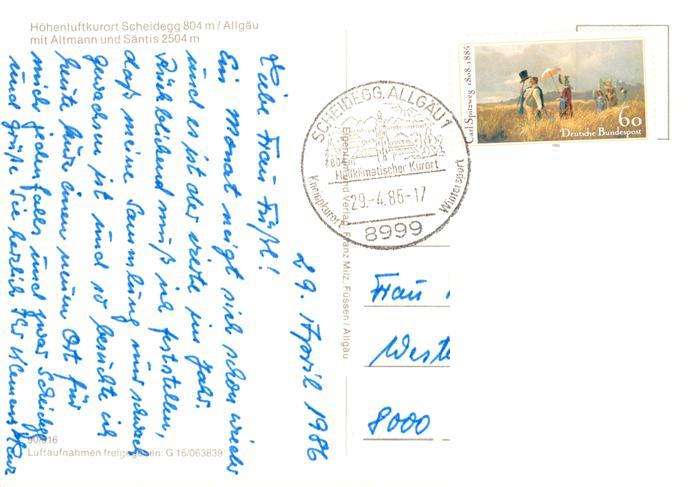 Höhenluftkurort Scheidegg 804 m / Allgäu
mit Altmann und Säntis 2504 m
29. April 1986
Liebe Frau
Ein Monat neigt sich schon wieder
und es ist der vierte im Jahr.
Rückblickend muß ich feststellen,
daß meine Sammlung nur schwach
gewachsen ist und so besuchte ich
heute einen neuen Ort für
mich jedenfalls und zwar Scheidegg
und grüße Sie herzlich Ihr Klemens
90/316
Luftaufnahmen freigegeben: G 16/063839
Eigentum und Verlag Franz Milz, Füssen / Allgäu
SCHEIDEGG, ALLGÄU 1
804 m
Heilklimatischer Kurort
Kneippkurort
Wintersport
29.-4.86-17
8999
Carl Spitzweg 1808-1885
60
Deutsche Bundespost
Frau
Weste
8000